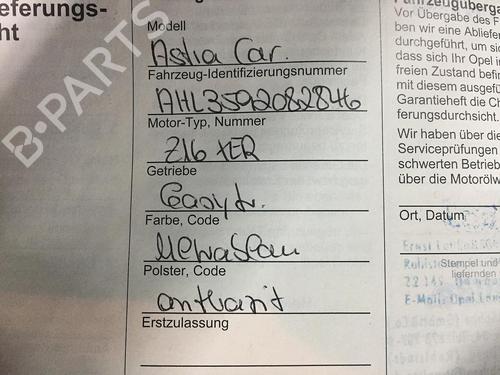 eferungs-
ht
Modell
Astra Car.
Fahrzeug-Identifizierungsnummer
AHL3592082846
Motor-Typ, Nummer
Z16 XER
Getriebe
Easytr.
Farbe, Code
Polster, Code
anthrazit
Erstzulassung
B-PARTS
Fahrzeugüberga
Vor Übergabe des F
ben wir eine Abliefer
durchgeführt, um sic
dass sich Ihr Opel in
freien Zustand befin
mit diesem ausgefü
Garantieheft die Ch
ferungsdurchsicht.
Wir haben über die
Serviceprüfungen
schwerten Betrieb
über die Motorölw
Ort, Datum
Stempel und
liefernden